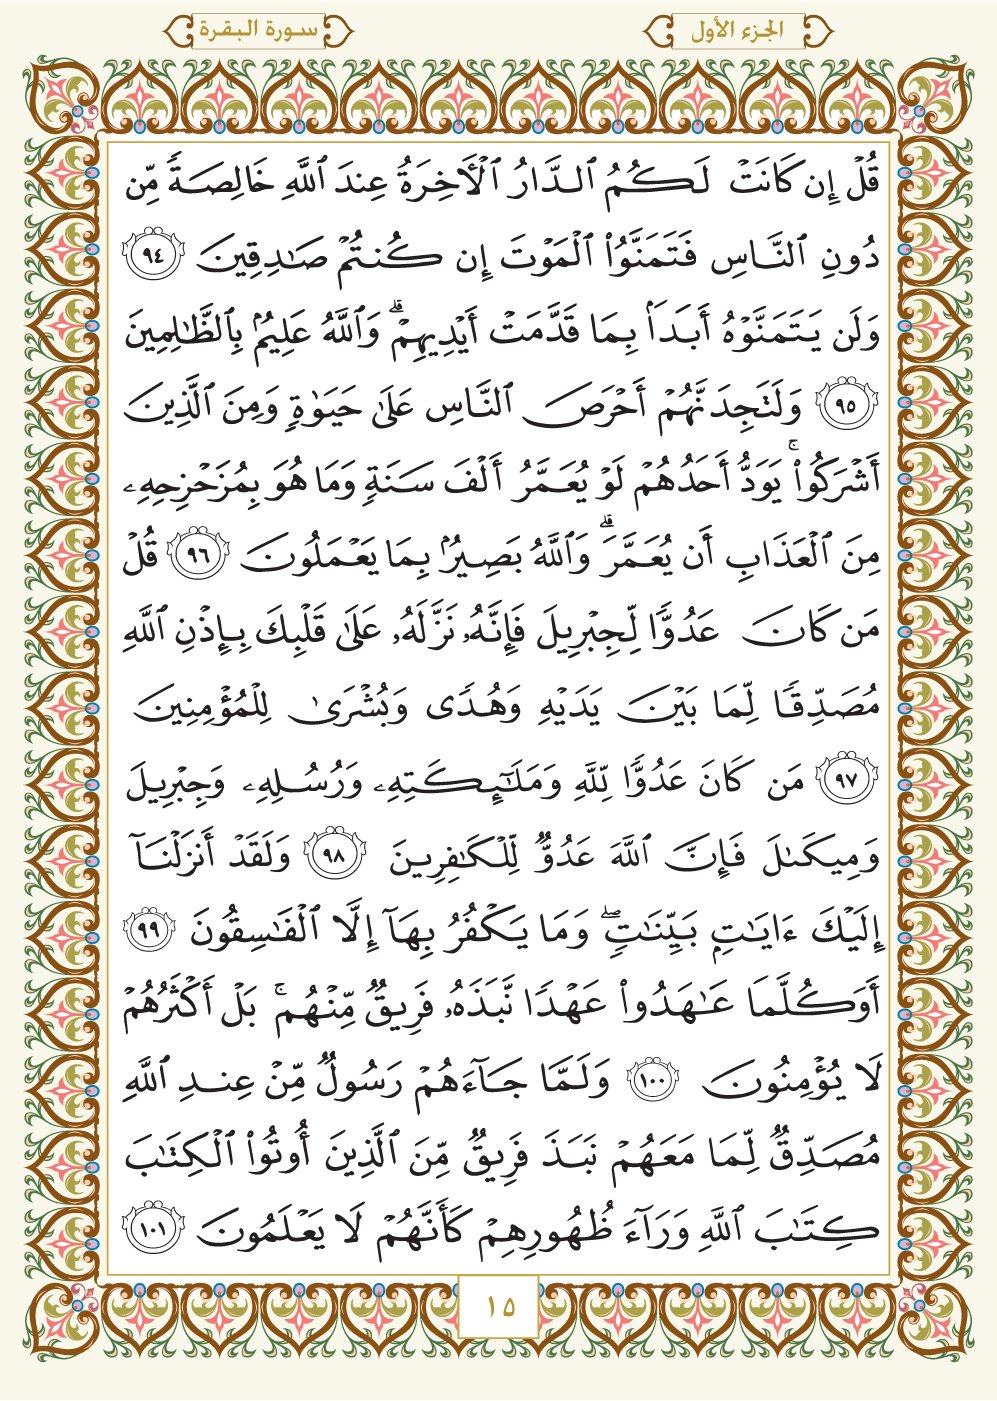 الجزء الأول
سورة البقرة
قُلۡ إِن كَانَتۡ لَكُمُ ٱلدَّارُ ٱلۡأٓخِرَةُ عِندَ ٱللَّهِ خَالِصَةٗ مِّن
دُونِ ٱلنَّاسِ فَتَمَنَّوُاْ ٱلۡمَوۡتَ إِن كُنتُمۡ صَٰدِقِينَ ٩٤
وَلَن يَتَمَنَّوۡهُ أَبَدَۢا بِمَا قَدَّمَتۡ أَيۡدِيهِمۡۚ وَٱللَّهُ عَلِيمُۢ بِٱلظَّٰلِمِينَ
٩٥ وَلَتَجِدَنَّهُمۡ أَحۡرَصَ ٱلنَّاسِ عَلَىٰ حَيَوٰةٖ وَمِنَ ٱلَّذِينَ
أَشۡرَكُواْۚ يَوَدُّ أَحَدُهُمۡ لَوۡ يُعَمَّرُ أَلۡفَ سَنَةٖ وَمَا هُوَ بِمُزَحۡزِحِهِۦ
مِنَ ٱلۡعَذَابِ أَن يُعَمَّرَۗ وَٱللَّهُ بَصِيرُۢ بِمَا يَعۡمَلُونَ ٩٦ قُلۡ
مَن كَانَ عَدُوّٗا لِّجِبۡرِيلَ فَإِنَّهُۥ نَزَّلَهُۥ عَلَىٰ قَلۡبِكَ بِإِذۡنِ ٱللَّهِ
مُصَدِّقٗا لِّمَا بَيۡنَ يَدَيۡهِ وَهُدٗى وَبُشۡرَىٰ لِلۡمُؤۡمِنِينَ
٩٧ مَن كَانَ عَدُوّٗا لِّلَّهِ وَمَلَٰٓئِكَتِهِۦ وَرُسُلِهِۦ وَجِبۡرِيلَ
وَمِيكَىٰلَ فَإِنَّ ٱللَّهَ عَدُوّٞ لِّلۡكَٰفِرِينَ ٩٨ وَلَقَدۡ أَنزَلۡنَآ
إِلَيۡكَ ءَايَٰتِۭ بَيِّنَٰتٖۖ وَمَا يَكۡفُرُ بِهَآ إِلَّا ٱلۡفَٰسِقُونَ ٩٩
أَوَكُلَّمَا عَٰهَدُواْ عَهۡدٗا نَّبَذَهُۥ فَرِيقٞ مِّنۡهُمۚ بَلۡ أَكۡثَرُهُمۡ
لَا يُؤۡمِنُونَ ١٠٠ وَلَمَّا جَآءَهُمۡ رَسُولٞ مِّنۡ عِندِ ٱللَّهِ
مُصَدِّقٞ لِّمَا مَعَهُمۡ نَبَذَ فَرِيقٞ مِّنَ ٱلَّذِينَ أُوتُواْ ٱلۡكِتَٰبَ
كِتَٰبَ ٱللَّهِ وَرَآءَ ظُهُورِهِمۡ كَأَنَّهُمۡ لَا يَعۡلَمُونَ ١٠١
١٥